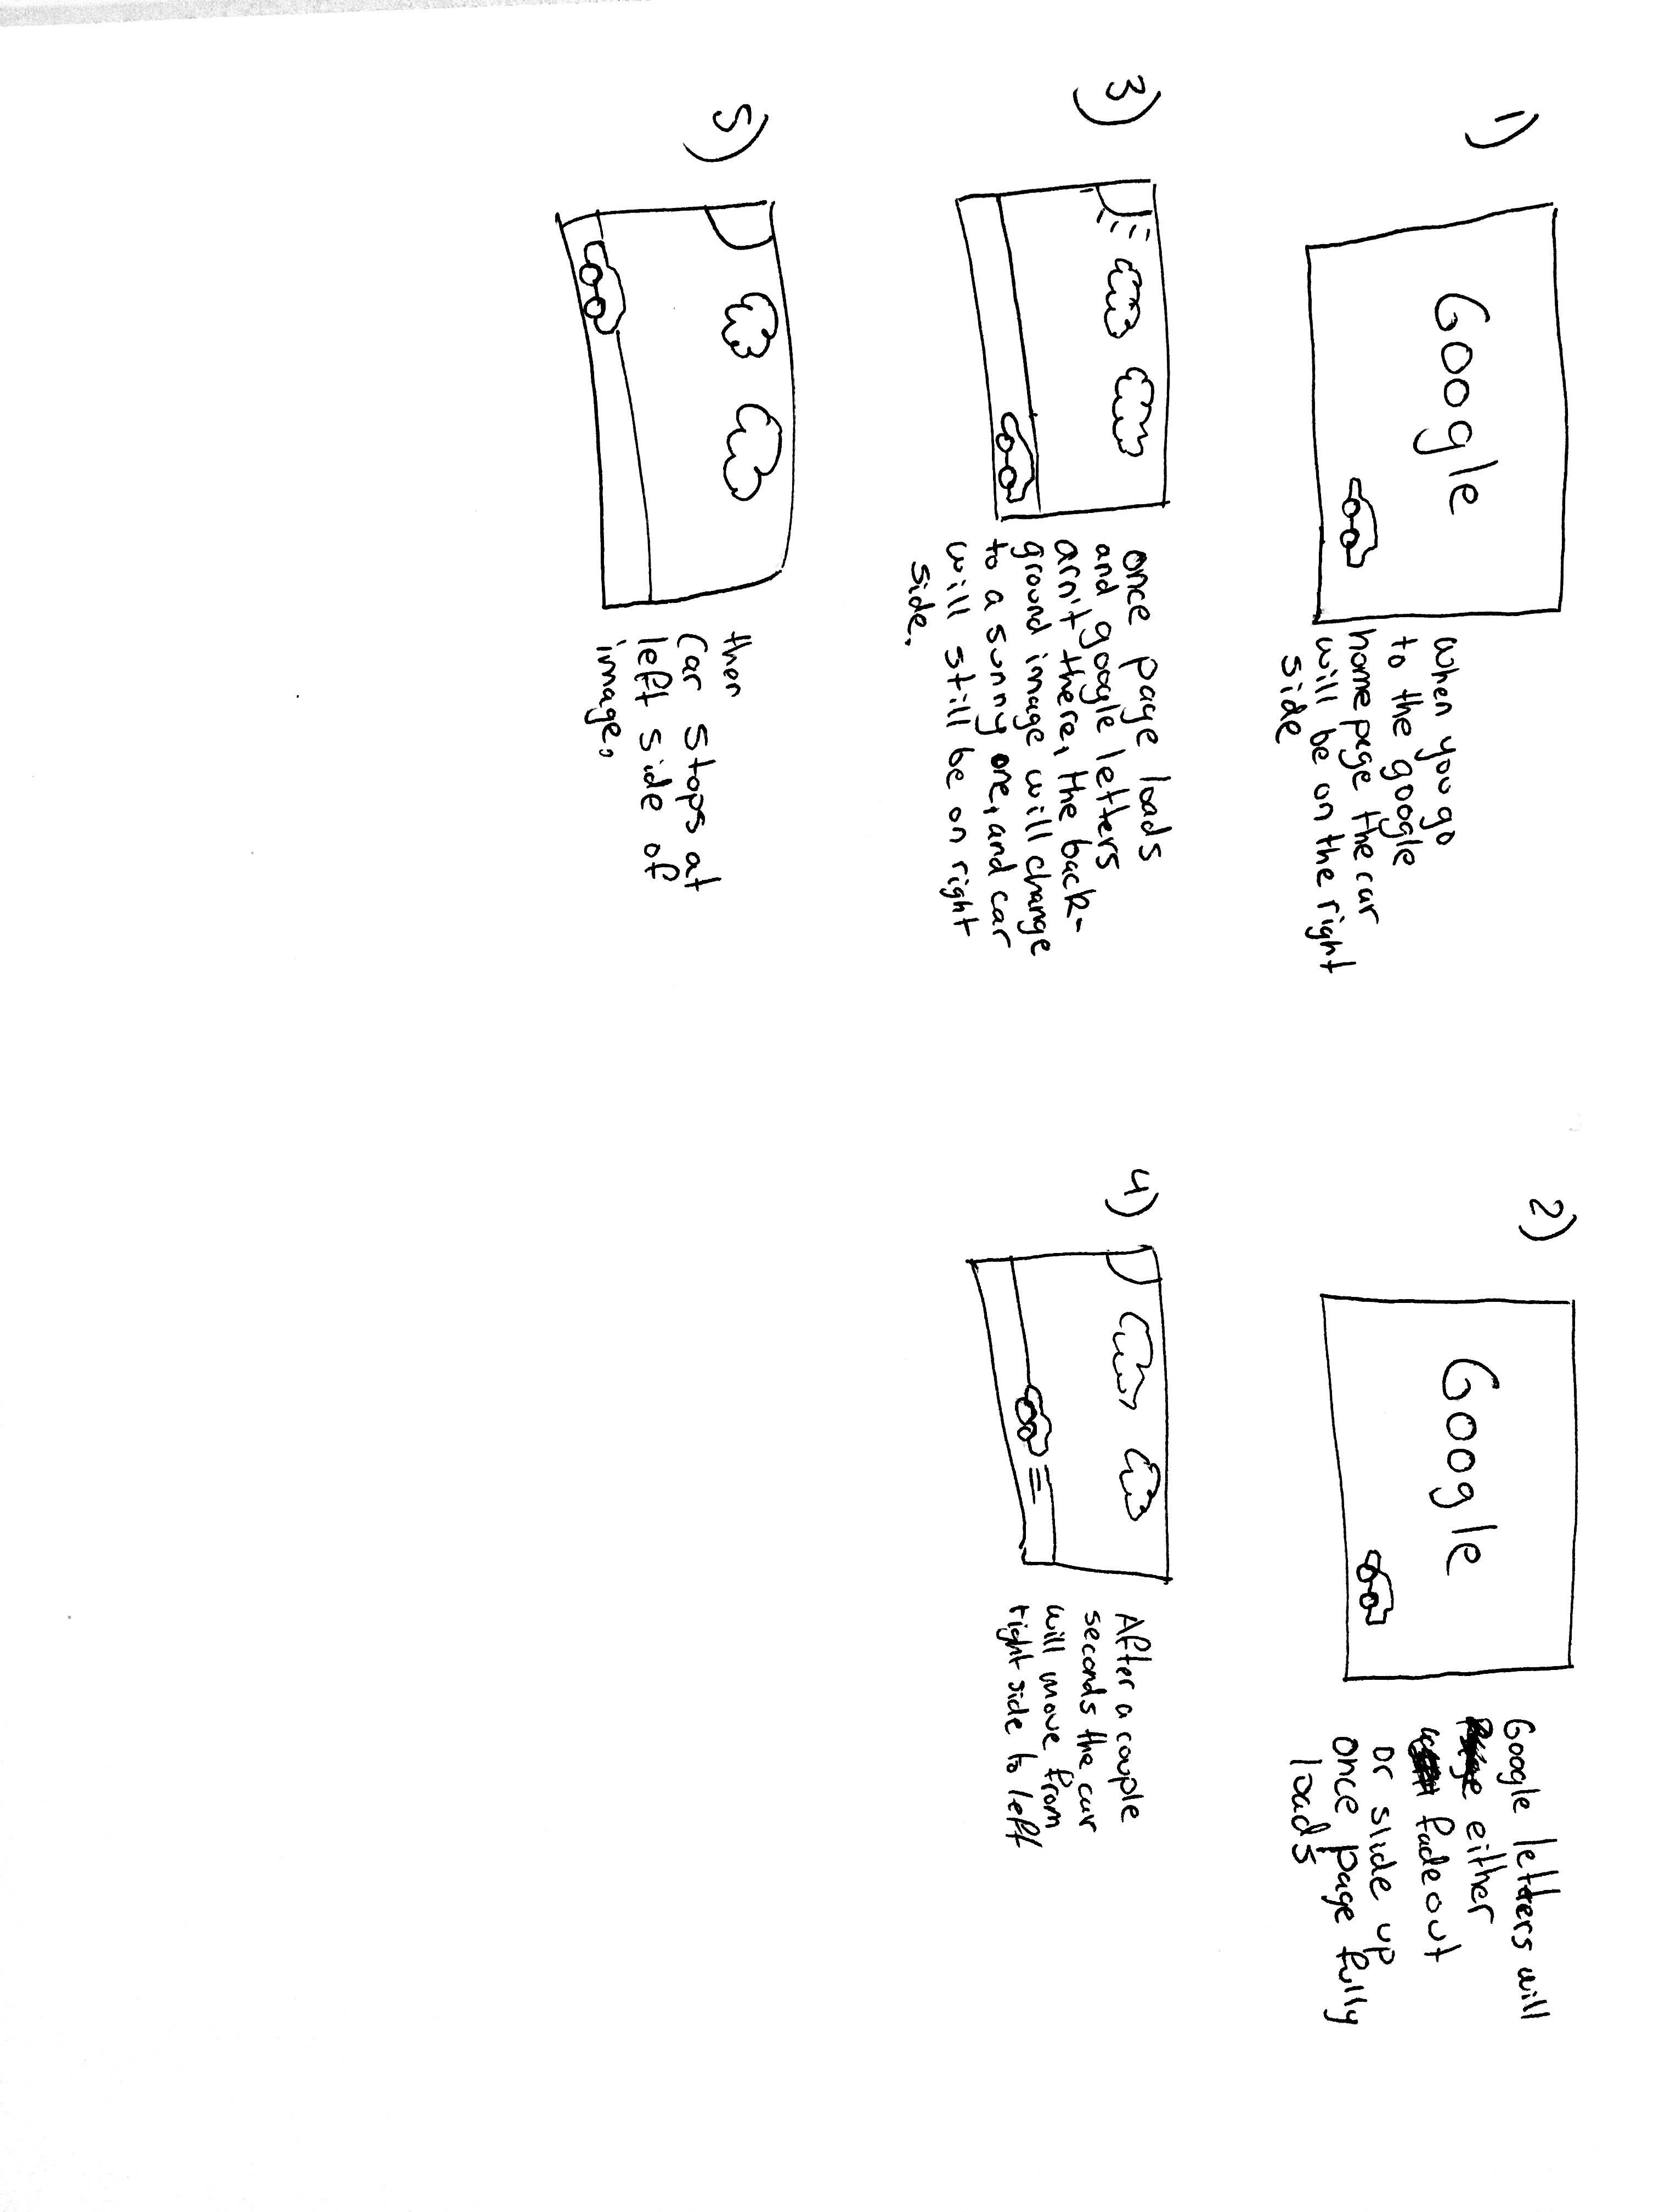 1)
Google
When you go
to the google
homepage the car
will be on the right
side
2)
Google
Google letters will
either
fade out
or slide up
once page fully
loads
3)
once page loads
and google letters
arn't there, the back-
ground image will change
to a sunny one, and car
will still be on right
side.
4)
After a couple
seconds the car
will move from
right side to left
5)
then
Car stops at
left side of
image.